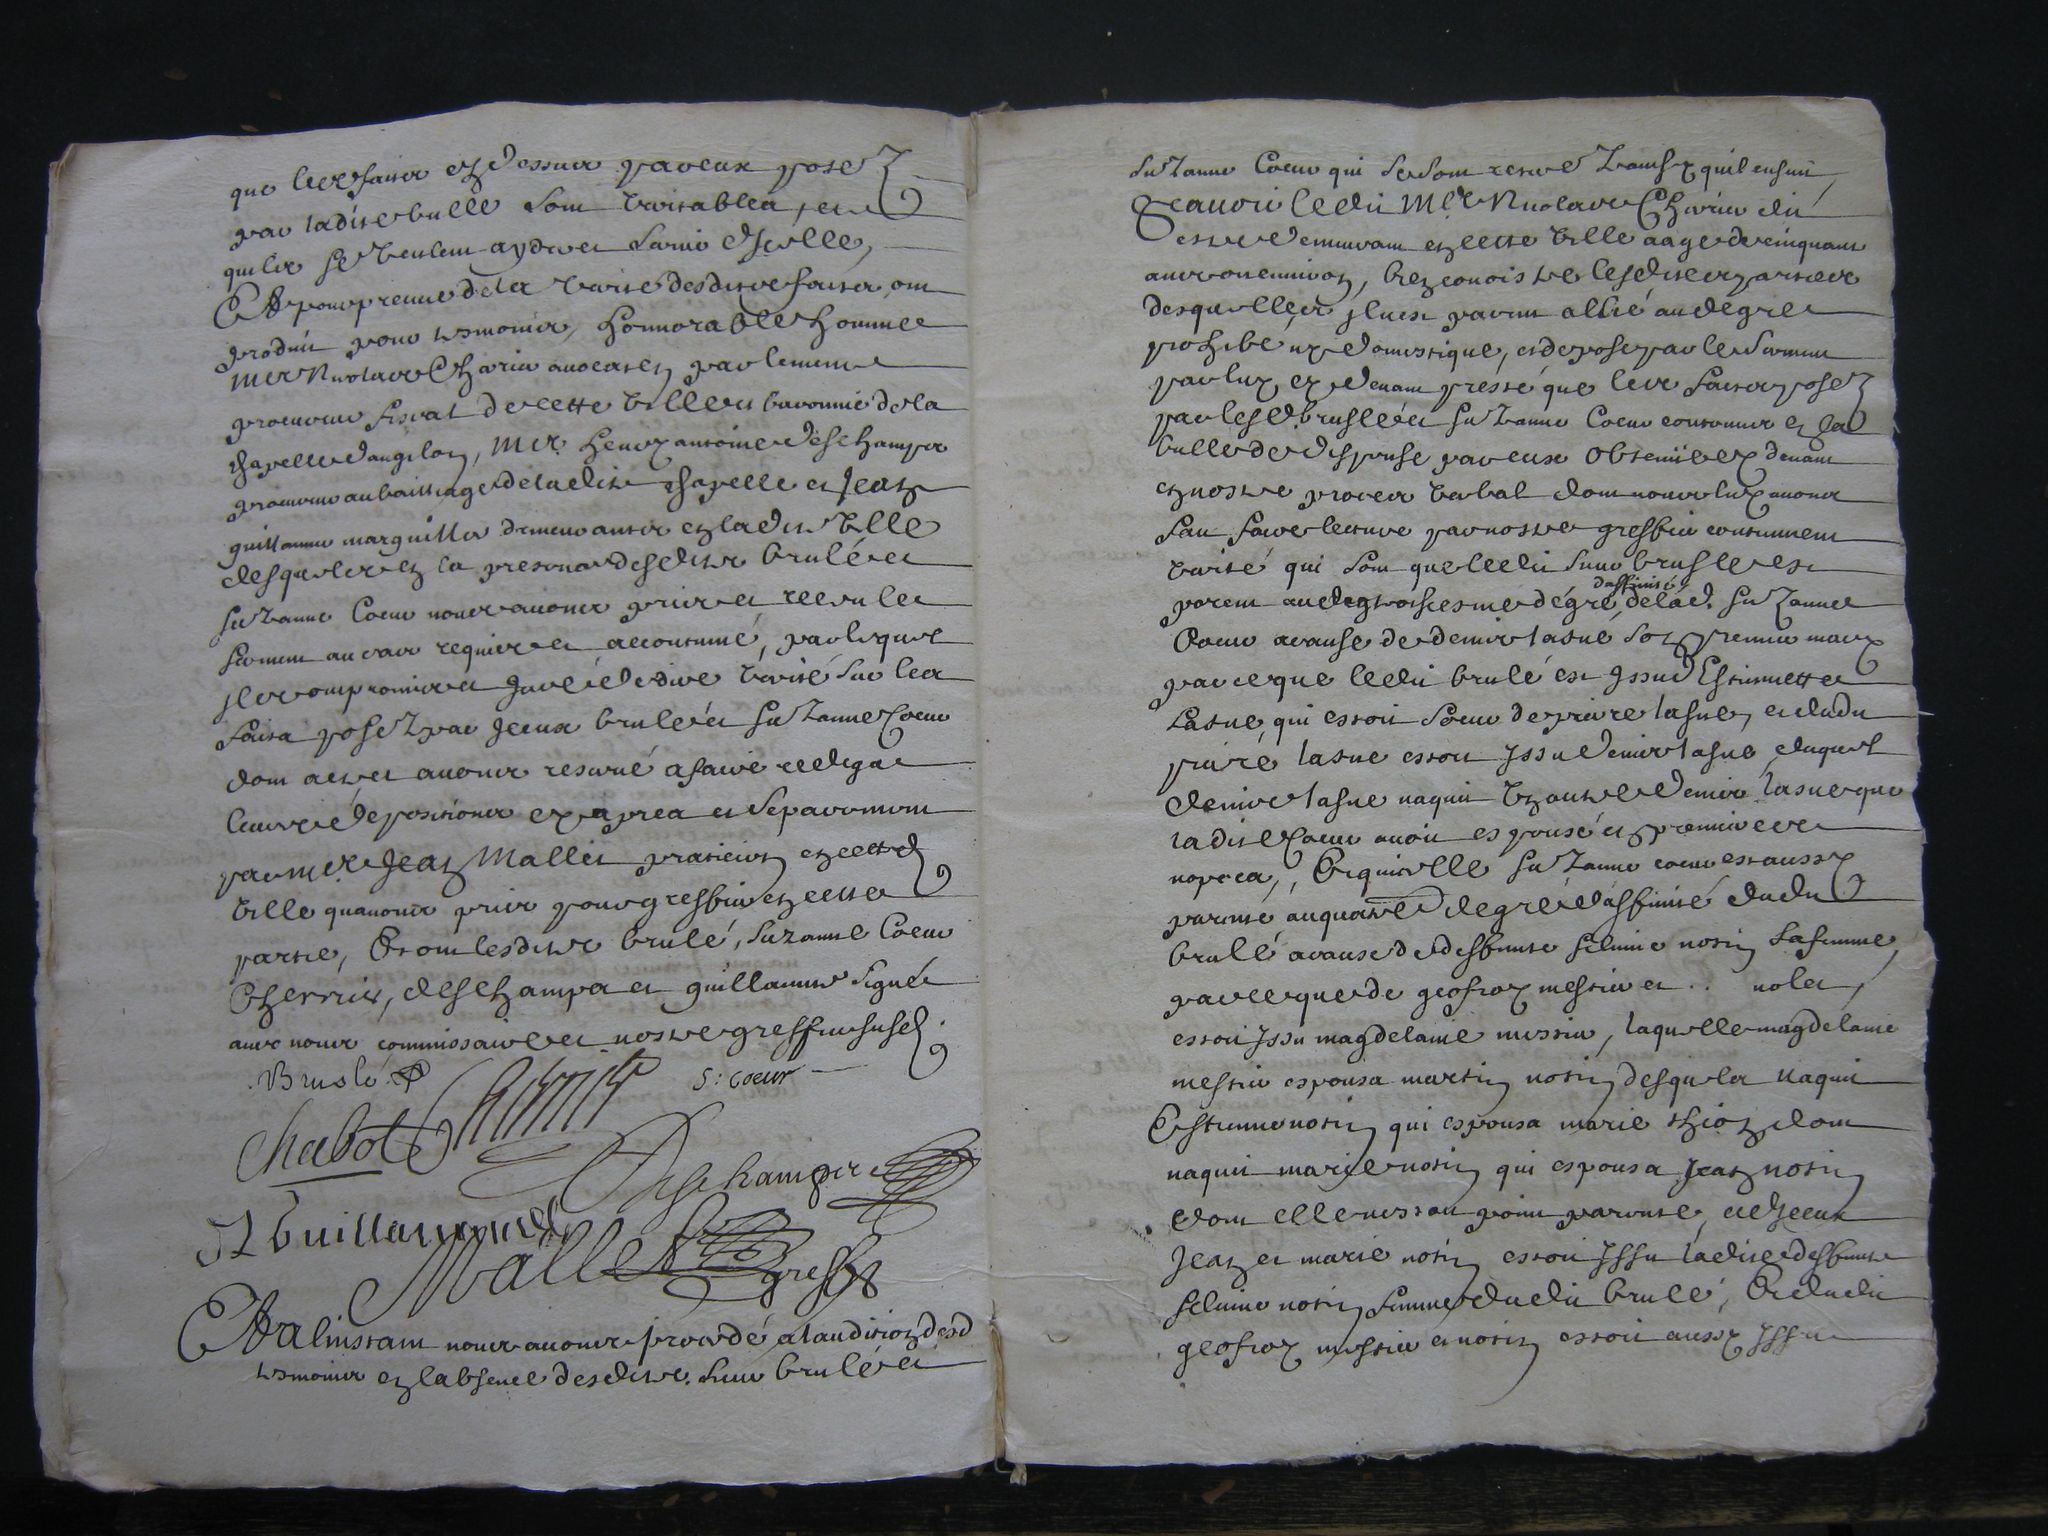 que les faits cy dessus par eux posez
par ladite bulle sont veritables, et
quils se veulent ayder et servir dycelle,
Et pour preuve de la verité desdits faits, ont
produit pour tesmoins, honnorable homme
Mer Nicolas Cherrier avocat en parlement
procureur fiscal de cette ville et baronnie de la
chapelle dangilon, Mer henry antoine deschamps
procureur au bailliage de ladite chapelle et Jean
guillaume marguillier demeurants en ladite ville
desquels en la presence desdits brulé et
Suzanne Coeur nous avons pris et receu le
serment au cas requis et accoutumé, par lequel
ils ont promis et juré de dire verité sur les
faits posez par iceux brulé et Suzanne Coeur
dont acte et avons reservé a faire rediger
leurs depositions cy apres et separement
par Mer Jean Mallet praticien en cette
ville quavons pris pour greffier en cette
partie, Et ont lesdits brulé, Suzanne Coeur
Cherrier, deschamps et guillaume signé
avec nous commissaire et nostre greffier susd.
Bruslé S: Coeur
Chabot Cherrier
Deschamps
J Guillaume
Mallet greffier
Et a linstant nous avons procedé a laudition desd
tesmoins en labsence desdits sieur brulé et
Suzanne Coeur qui se sont retirez ainsy quil ensuit,
Scavoir ledit Mer Nicolas Cherrier dit
estre demeurant en cette ville aagé de cinquante
ans ou environ, bien conoistre lesdites parties
desquelles il nest parent allié au degré
prohibé ny domestique, et depose par le serment
par luy cy devant presté que les faits posez
par lesd. bruslé et Suzanne Coeur contenus en la
bulle de dispense par eux obtenüe cy devant
en nostre proces verbal dont nous luy avons
fait faire lecture par nostre greffier contiennent
verité qui sont que ledit sieur bruslé est
parent au troisiesme dégré daffinité de lad. Suzanne
Coeur a cause de denis lasné son premier mary
parce que ledit brulé est issu d'Estiennette
Lasne, qui estoit soeur de pierre lasne, et dudit
pierre lasne estoit issu denis lasne duquel
denis lasne naquit un autre denis lasne que
ladite Coeur avoit espousé en premieres
nopces, Et quicelle Suzanne coeur est aussy
parente au quatre degré daffinité dudit
brullé a cause de deffunte Selmie nosin sa femme,
parce que de geofroy messier et .. nolet,
estoit issu magdelaine messier, laquelle magdelaine
messier espousa martin nosin desquels naquit
Estienne nosin qui espousa marie thion dont
naquit marie nosin qui espousa Jean nosin
dont elle nestoit point parente, et diceux
Jean et marie nosin estoit issu ladite deffunte
Selmie nosin femme dudit brulé, Et dudit
geofroy messier et nosin estoit aussy issu